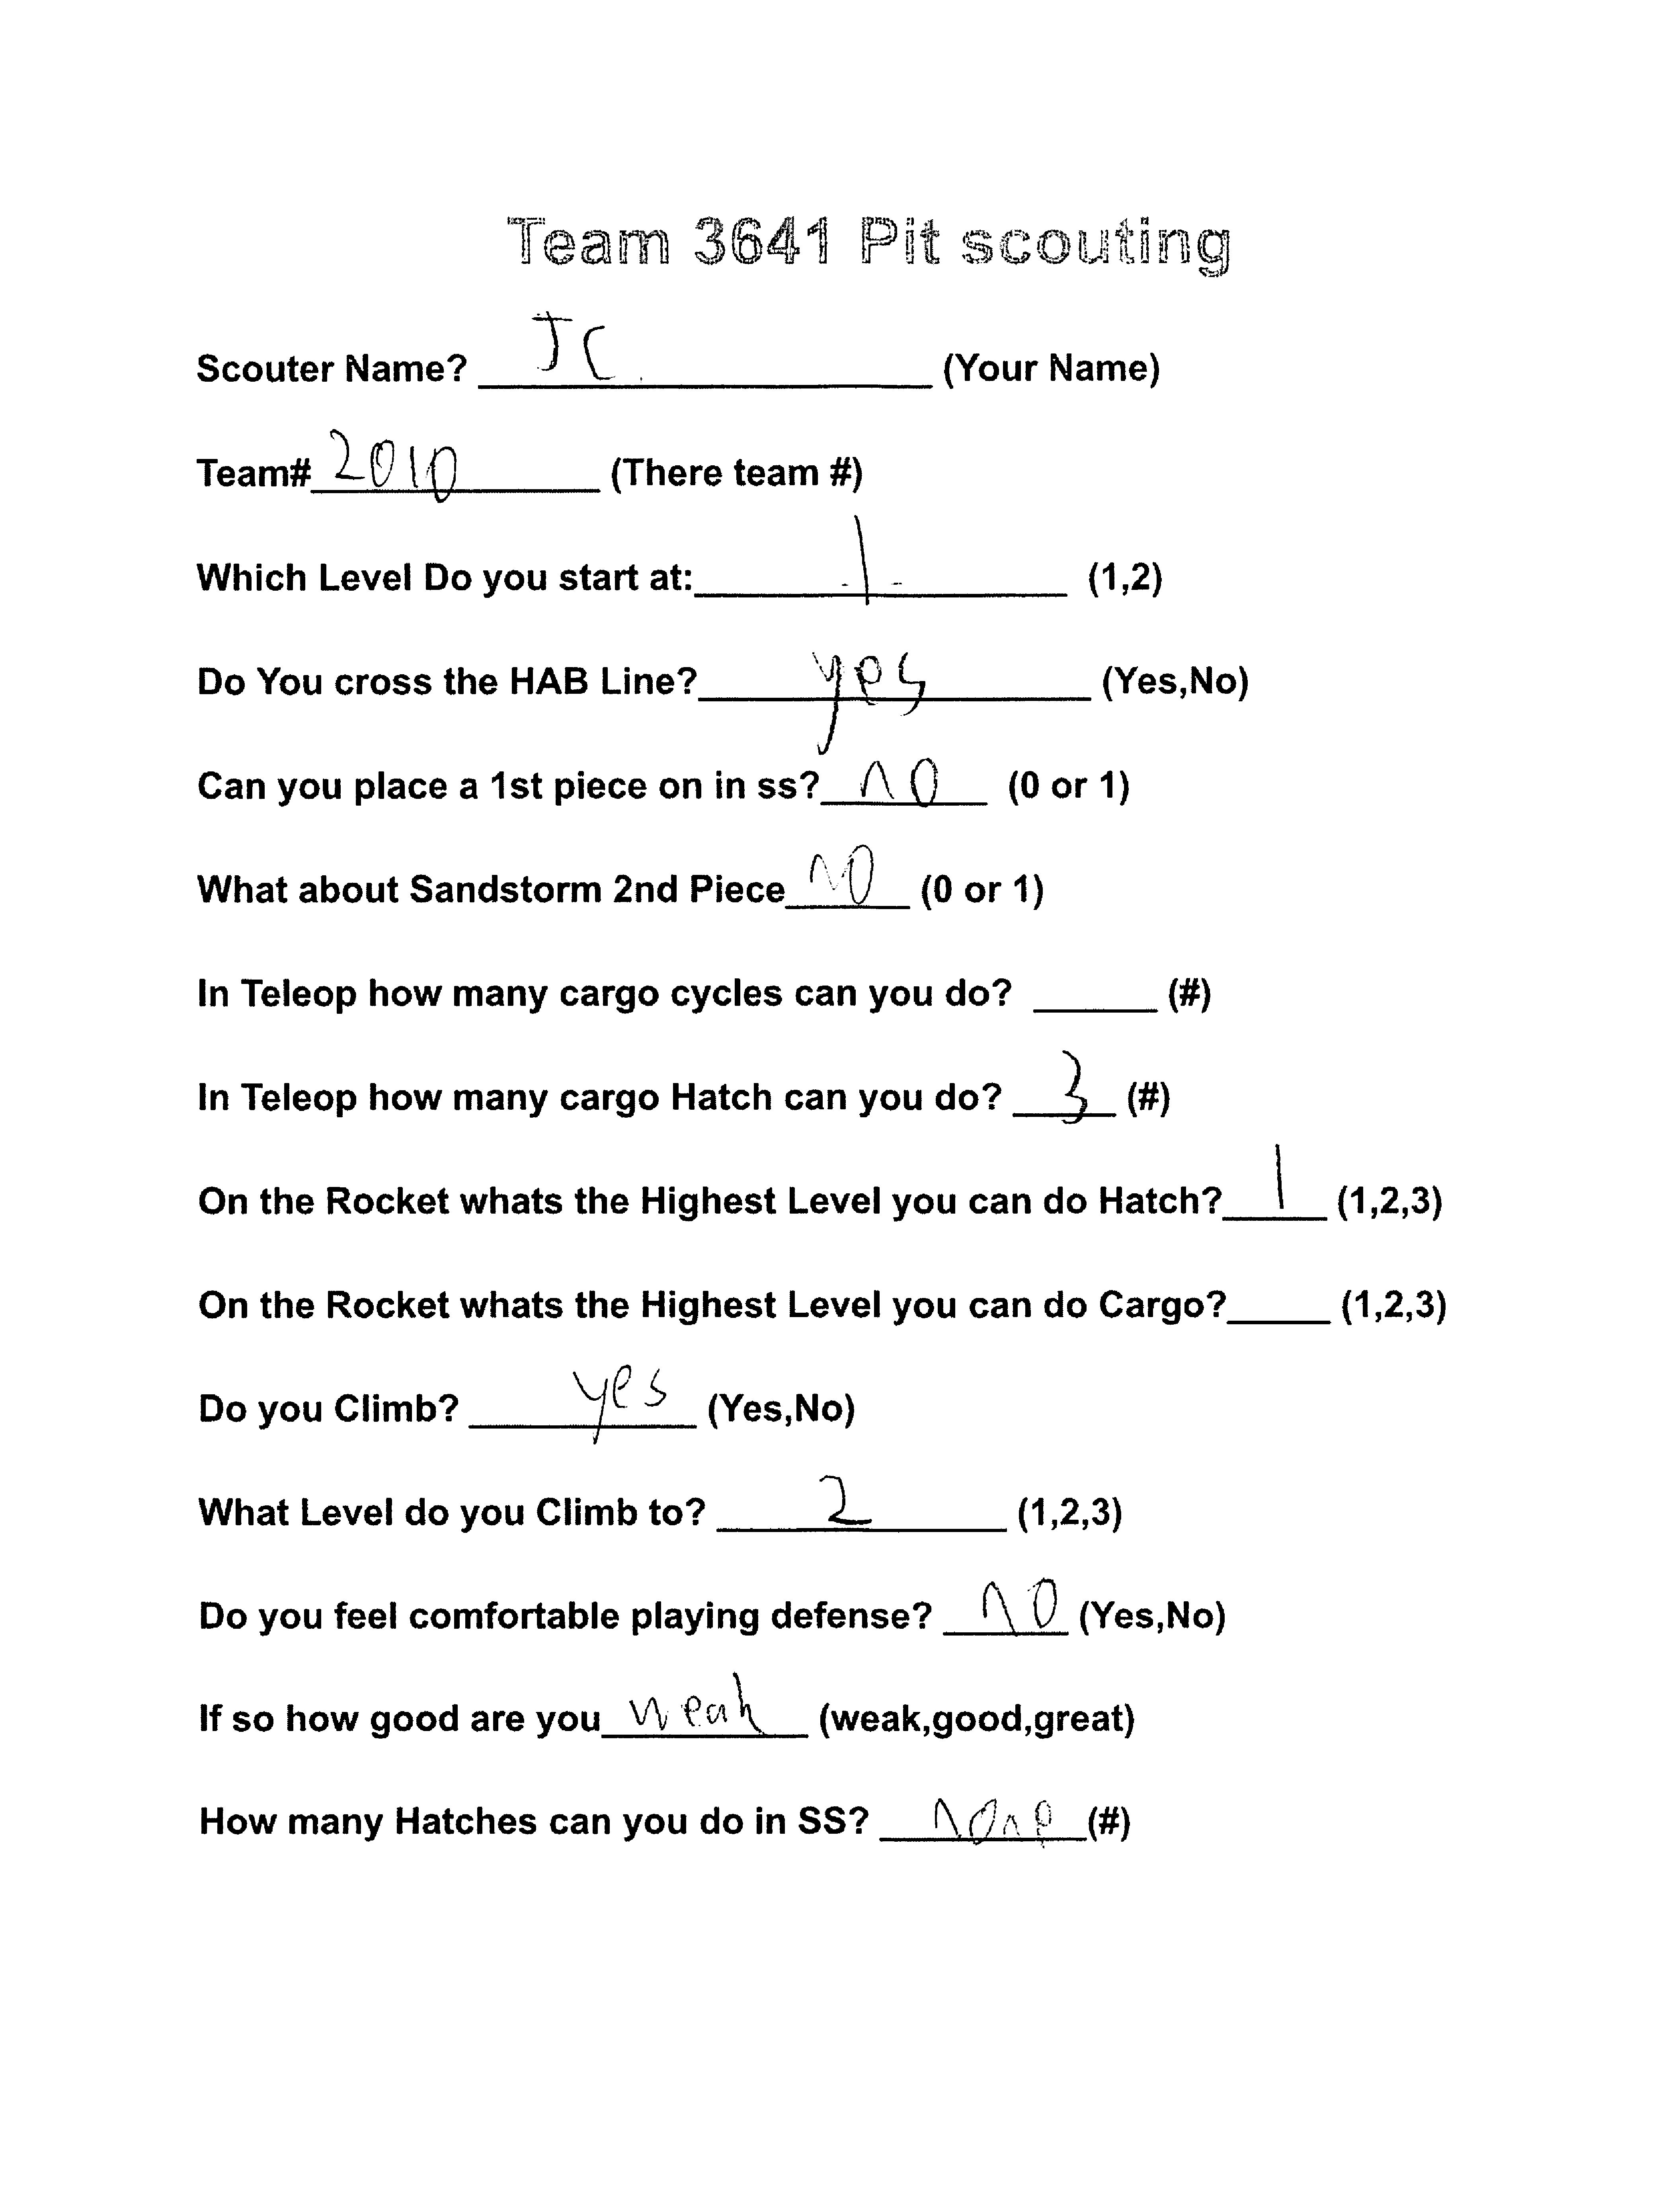 Team 3641 Pit scouting
Scouter Name? JC (Your Name)
Team# 2010 (There team #)
Which Level Do you start at: 1 (1,2)
Do You cross the HAB Line? yes (Yes,No)
Can you place a 1st piece on in ss? no (0 or 1)
What about Sandstorm 2nd Piece NO (0 or 1)
In Teleop how many cargo cycles can you do? ______ (#)
In Teleop how many cargo Hatch can you do? 3 (#)
On the Rocket whats the Highest Level you can do Hatch? 1 (1,2,3)
On the Rocket whats the Highest Level you can do Cargo?_____ (1,2,3)
Do you Climb? yes (Yes,No)
What Level do you Climb to? 2 (1,2,3)
Do you feel comfortable playing defense? NO (Yes,No)
If so how good are you weak (weak,good,great)
How many Hatches can you do in SS? none (#)